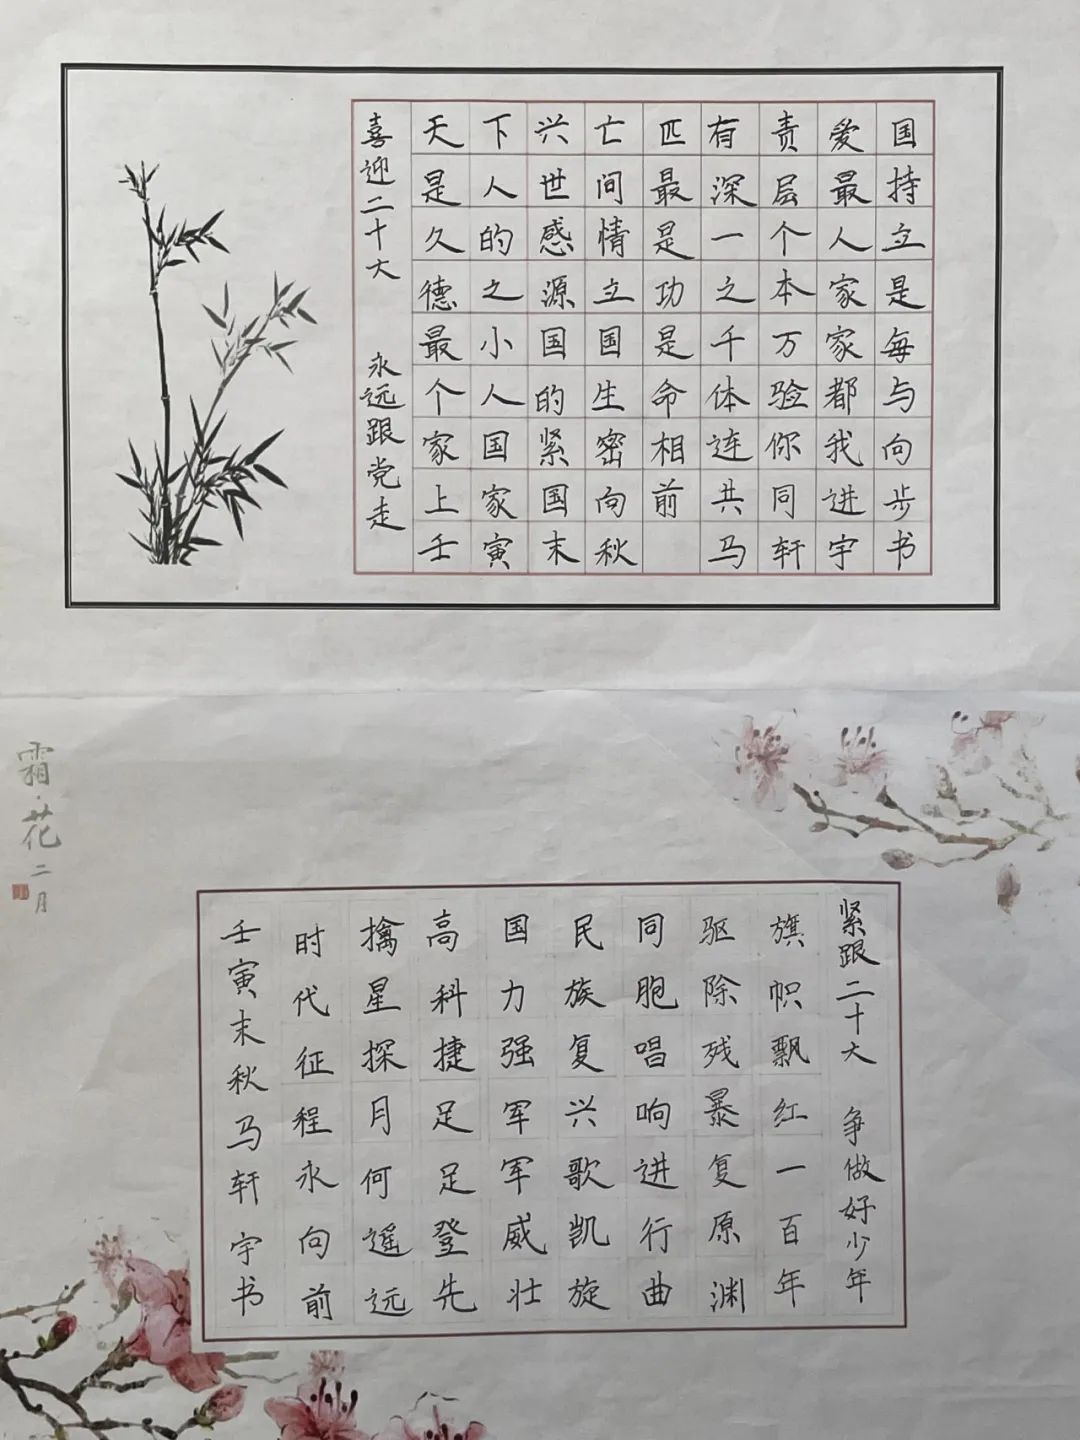 喜迎二十大 永远跟党走
天下兴亡匹有责爱国
是人世间最深层最持
久的感情是一个人立
德之源立功之本家是
最小国国是千万家每
个人的生命体验都与
家国紧密相连你我向
上家国向前共同进步
壬寅末秋 马轩宇书
霜·花
二月
紧跟二十大 争做好少年
旗帜飘红一百年
驱除残暴复原渊
同胞唱响进行曲
民族复兴歌凯旋
国力强军军威壮
高科捷足足登先
擒星探月何遥远
时代征程永向前
壬寅末秋马轩宇书